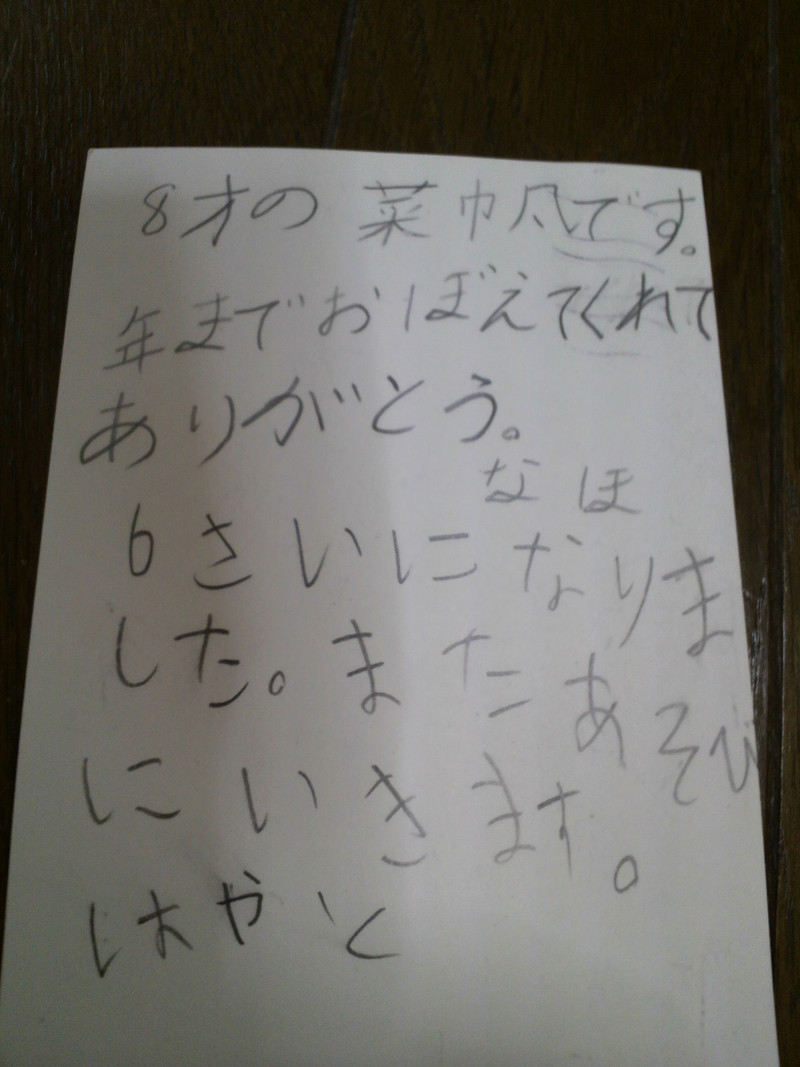 8才の菜帆です。
年までおぼえてくれて
ありがとう。
なほ
6さいになりま
した。またあそび
にいきます。
はやと